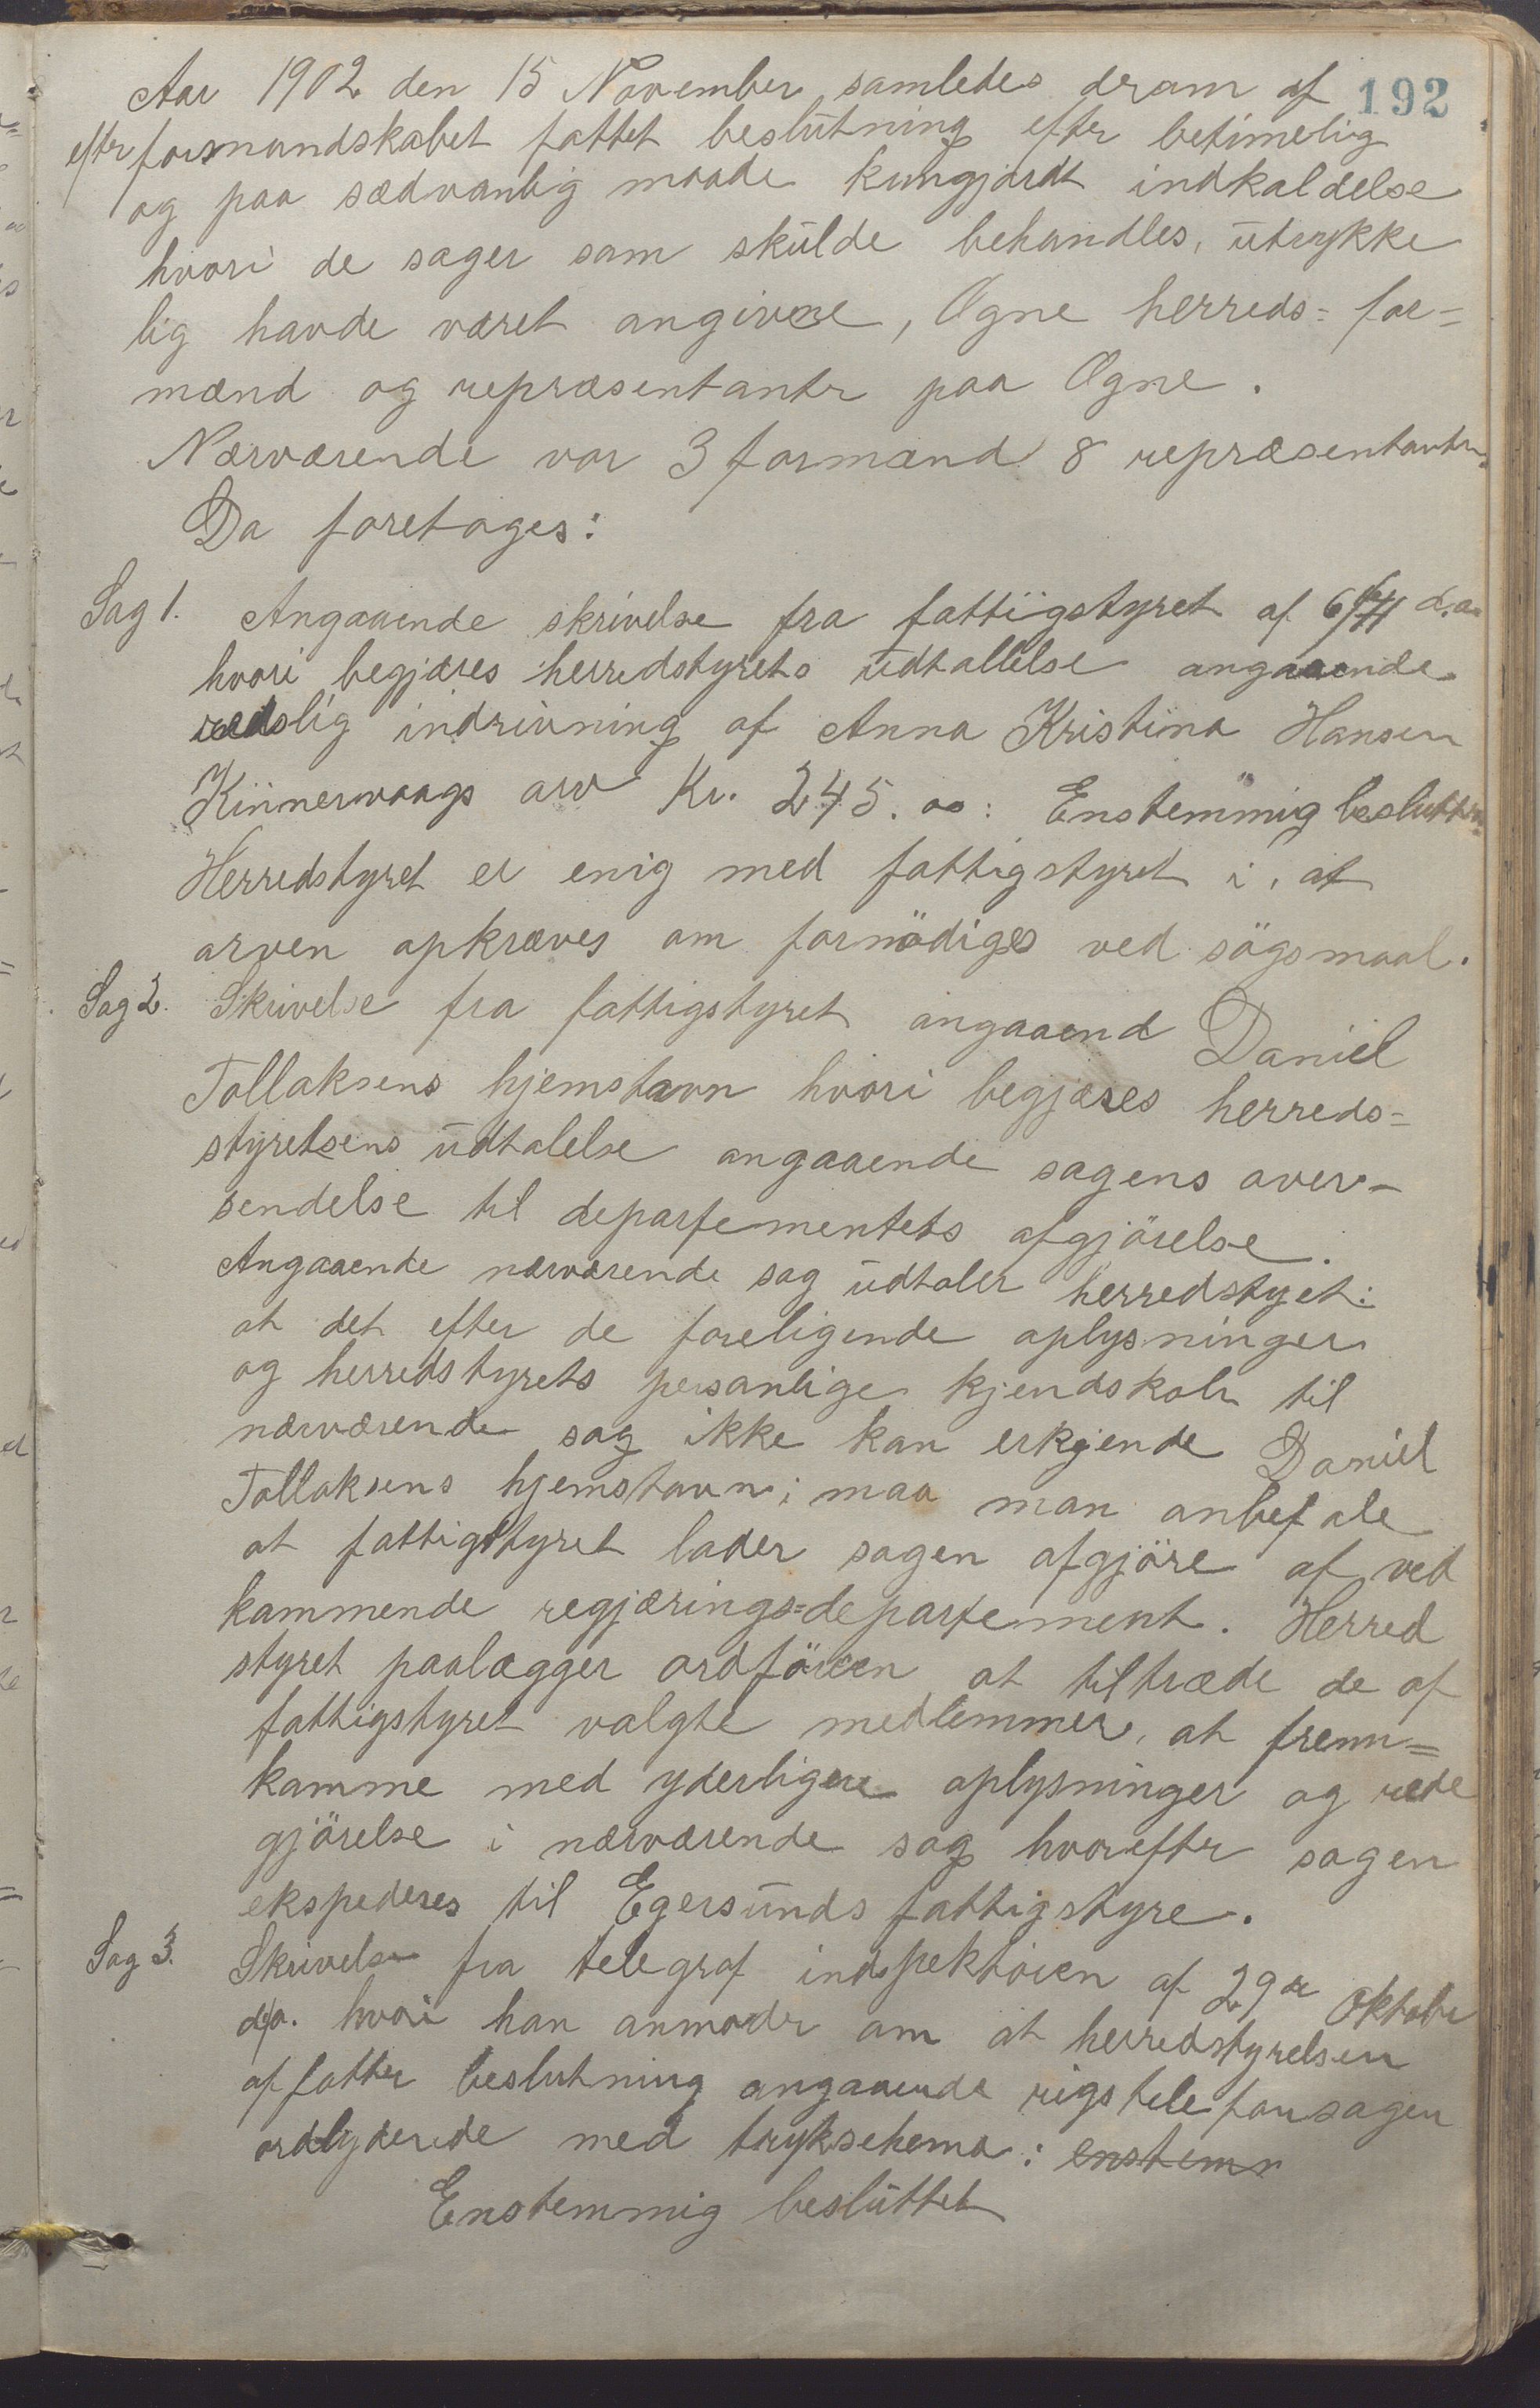 192
Aar 1902 den 15 November samledes deram af
efter formandskabet fattet beslutning efter betimelig
og paa sædvanlig maade kungjordt indkaldelse
hvori de sager som skulde behandles, utrykke
lig havde været angivene, Ogne herreds= for=
mænd og repræsentantr paa Ogne.
Nærværende var 3 formænd 8 repræsentantr.
Da foretoges:
Sag 1. Angaaende skrivelse fra fattigstyret af 6/11 d.a.
hvori begjæres herredstyrets udtallelse angaaende
redslig indrivning af Anna Kristina Hansen
Kinnervaags arv Kr. 245.00: Enstemmig besluttet
Herredstyret er enig med fattigstyret i, at
arven opkræves om fornödiges ved sögsmaal.
Sag 2. Skrivelse fra fattigstyret angaaend Daniel
Tollaksens hjemstavn hvori begjæres herreds=
styretsens udtalelse angaaende sagens over-
sendelse til departementets afgjörelse.
Angaaende nærværende sag udtaler herredstyet:
at det efter de foreligende oplysninger
og herredstyrets personlige kjendskab til
nærværende sag ikke kan erkjende Daniel
Tollaksens hjemstavn; maa man anbefale
at fattigstyret lader sagen afgjöre af ved
kommende regjærings=departement. Herred
styret paalægger ordföreren at tiltræde de af
fattigstyret valgte medlemmer, at frem=
komme med yderligere oplysninger og rede
gjörelse i nærværende sag hvorefter sagen
ekspederes til Egersunds fattigstyre.
Sag 3. Skrivelse fra telegraf indspektören af 29de Oktobr
d/a. hvori han anmodr om at herredstyrelsen
affatter beslutning angaaende rigstelefonsagen
ordlydende med trykschema: enstemm
Enstemmig besluttet